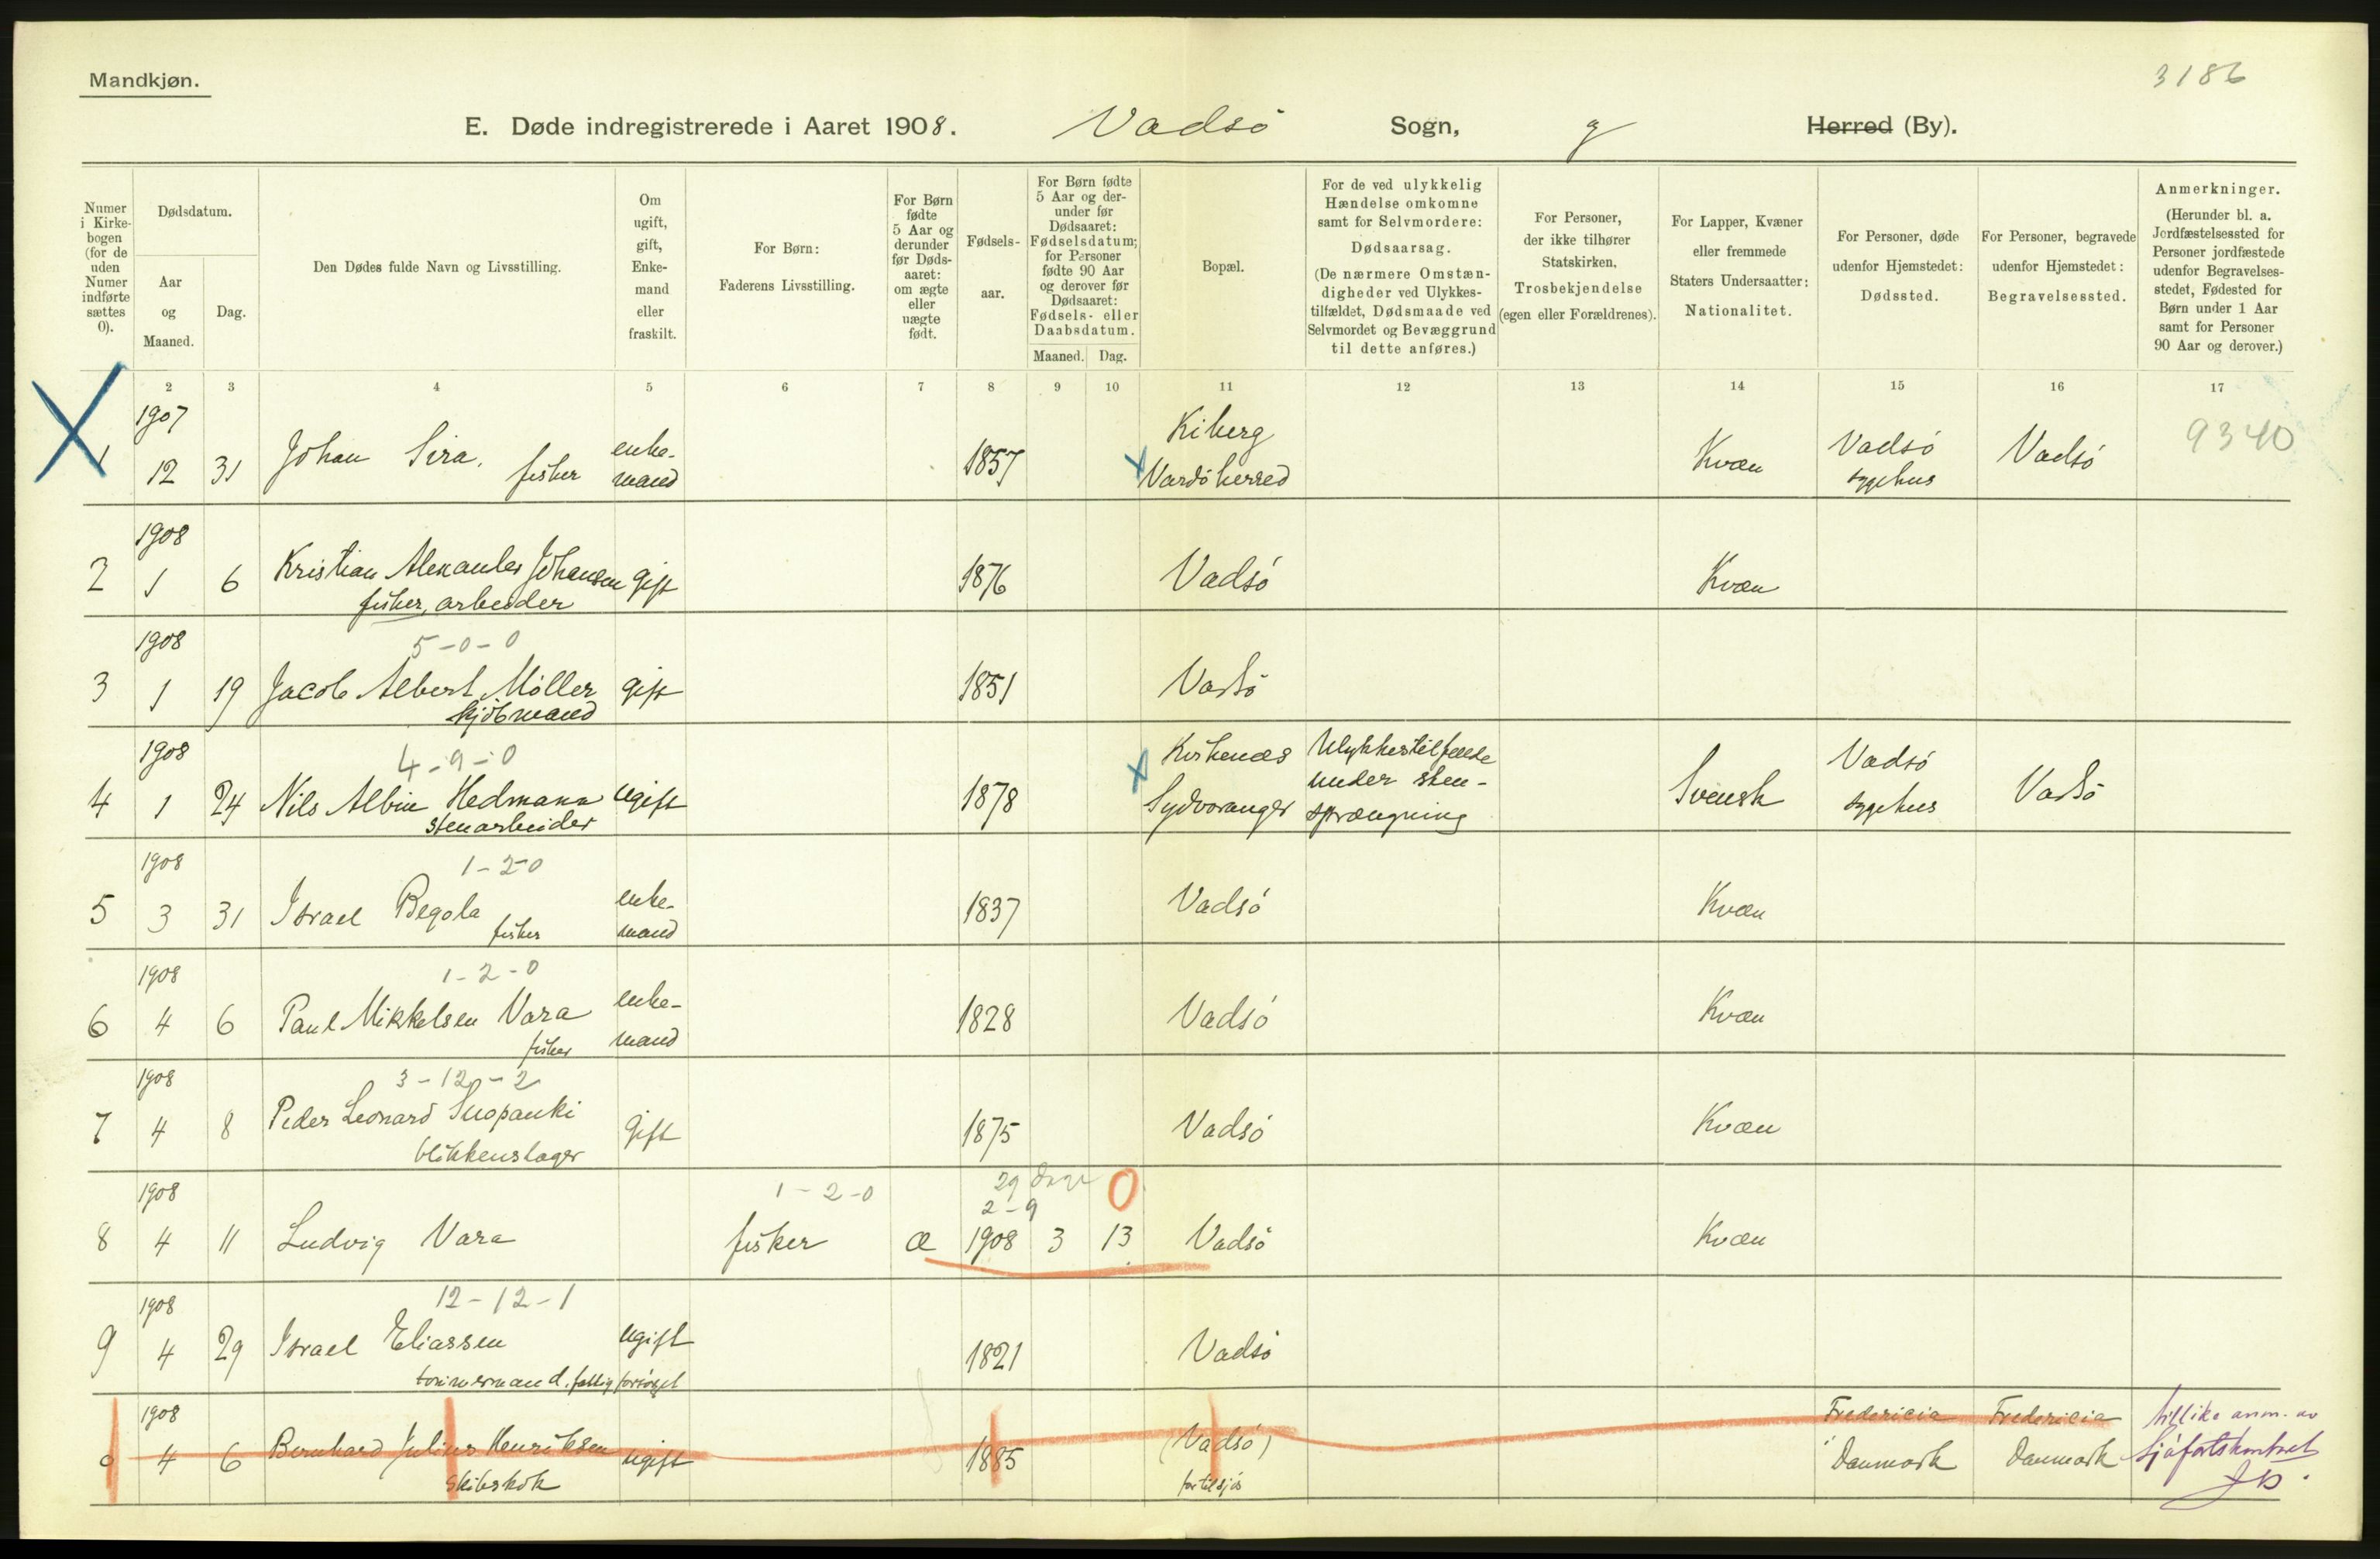 Mandkjøn.
3186
E. Døde indregistrerede i Aaret 1908. Vadsö Sogn, Herred (By).
Numer i Kirkebogen (for de uden Numer indførte sættes 0).
Dødsdatum.
Aar og Maaned.
Dag.
Den Dødes fulde Navn og Livsstilling.
Om ugift, gift, Enkemand eller fraskilt.
For Børn: Faderens Livsstilling.
For Børn fødte 5 Aar og derunder før Dødsaaret: om ægte eller uægte født.
Fødselsaar.
For Børn fødte 5 Aar og derunder før Dødsaaret: Fødselsdatum; for Personer fødte 90 Aar og derover før Dødsaaret: Fødsels- eller Daabsdatum.
Maaned. Dag.
Bopæl.
For de ved ulykkelig Hændelse omkomne samt for Selvmordere: Dødsaarsag. (De nærmere Omstændigheder ved Ulykkestilfældet, Dødsmaade ved Selvmordet og Bevæggrund til dette anføres.)
For Personer, der ikke tilhører Statskirken, Trosbekjendelse (egen eller Forældrenes).
For Lapper, Kvæner eller fremmede Staters Undersaatter: Nationalitet.
For Personer, døde udenfor Hjemstedet: Dødssted.
For Personer, begravede udenfor Hjemstedet: Begravelsessted.
Anmerkninger. (Herunder bl. a. Jordfæstelsessted for Personer jordfæstede udenfor Begravelsesstedet, Fødested for Børn under 1 Aar samt for Personer 90 Aar og derover.)
2 3 4 5 6 7 8 9 10 11 12 13 14 15 16 17
1907 Kiberg 9340
1 12 31 Johan Sira. fisker enkemand 1857 Vardöherred Kvæn Vadsö sygehus Vadsö
1908
2 1 6 Kristian Alexander Johansen gift 1876 Vadsö Kvæn
fisker, arbeider
1908 5-0-0
3 1 19 Jacob Albert Möller gift 1851 Vadsö
kjöbmand
1908 4-9-0 Kirkenæs Ulykkestilfælde
4 1 24 Nils Albin Hedmann ugift 1878 Sydvaranger under stensprængning Svensk Vadsö sygehus Vadsö
stenarbeider
1908 1-2-0
5 3 31 Israel Begola fisker enkemand 1837 Vadsö Kvæn
1908 1-2-0
6 4 6 Paul Mikkelsen Vara fisker enkemand 1828 Vadsö Kvæn
1908 3-12-2
7 4 8 Peder Leonard Suopanki gift 1875 Vadsö Kvæn
blikkenslager
1908 1-2-0 29 0
2-9
8 4 11 Ludvig Vara fisker æ 1908 3 13 Vadsö Kvæn
1908 12-12-1
9 4 29 Israel Eliassen ugift 1821 Vadsö
tømmermand, fattigforsörget
1908 Fredericia Fredericia tillike anm. av
0 4 6 Bernhard Julius Henriksen ugift 1885 (Vadsö) Danmark Danmark Sjöfartskontoret
skibskok for tilsjös